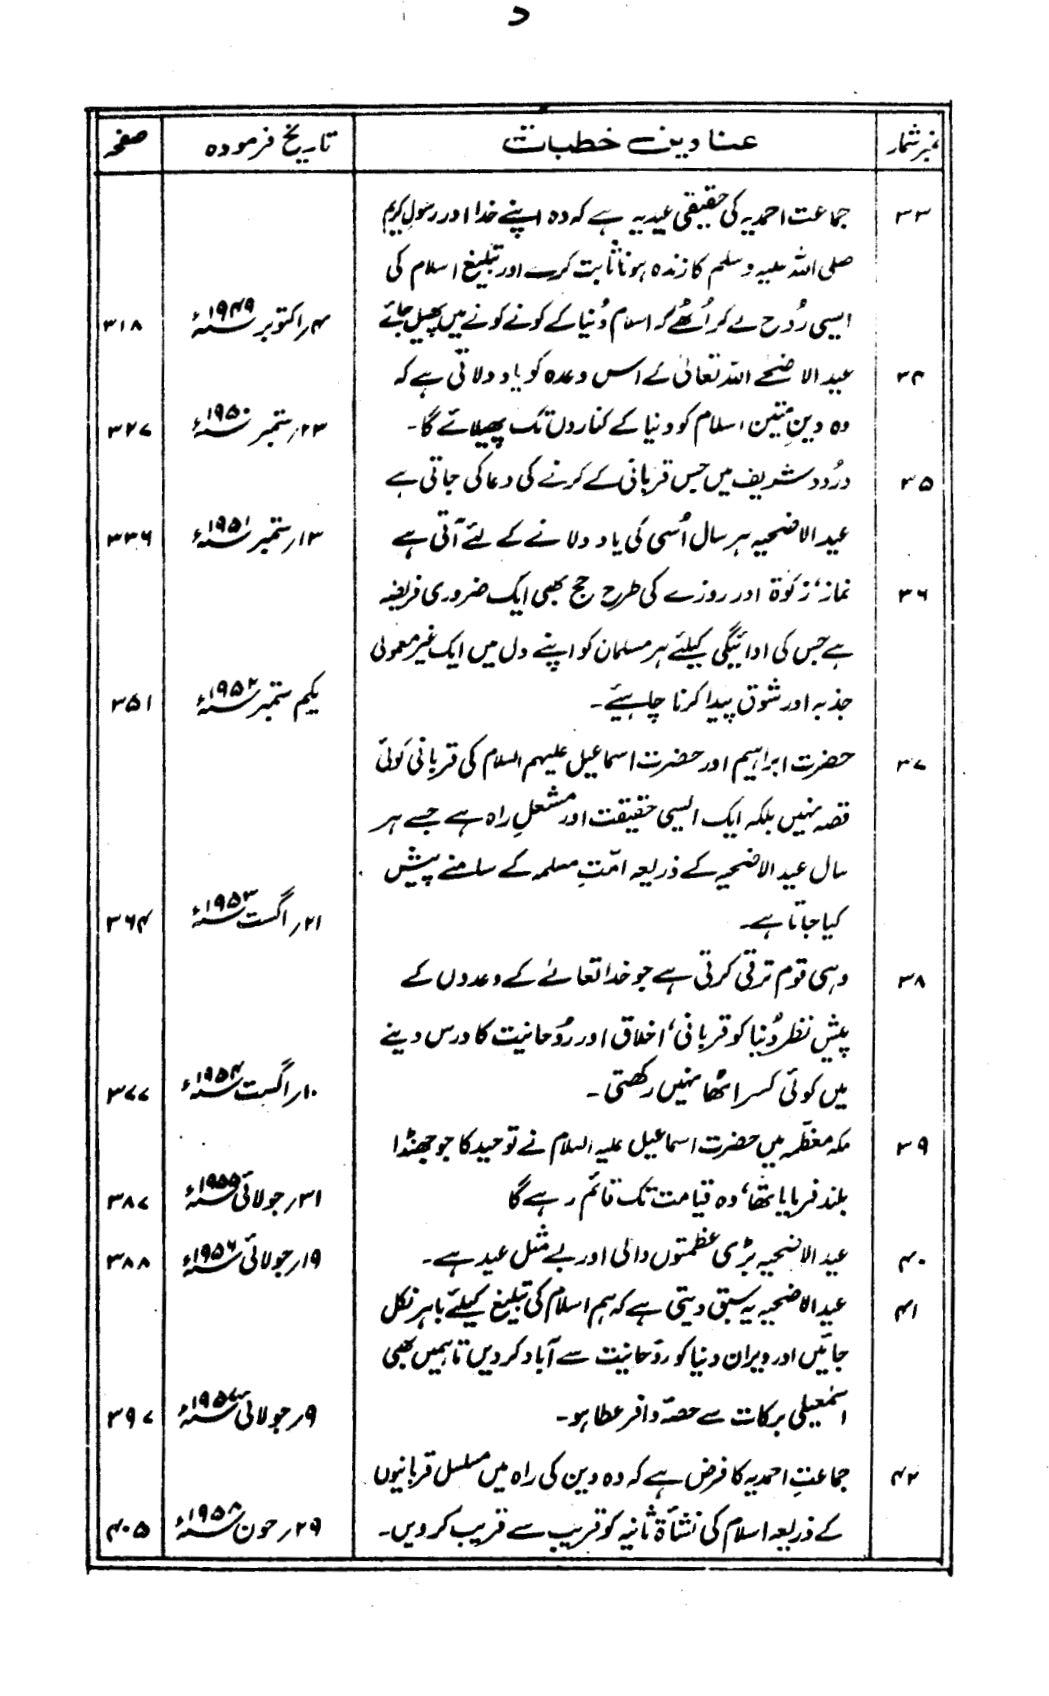 د
نمبر شمار عناوین خطبات تاریخ فرمودہ صفحہ
۳۳ جماعت احمدیہ کی حقیقی عید یہ ہے کہ وہ اپنے خدا اور رسولِ کریم
صلی اللہ علیہ وسلم کا زندہ ہونا ثابت کرے اور تبلیغ اسلام کی
ایسی رُوح لے کر اُٹھے کہ اسلام دُنیا کے کونے کونے میں پھیل جائے ۴؍اکتوبر ۱۹۴۹ء ۳۱۸
۳۴ عید الاضحٰے اللہ تعالیٰ کے اس وعدہ کو یاد دلاتی ہے کہ
وہ دینِ متین اسلام کو دنیا کے کناروں تک پھیلائے گا۔ ۲۳؍ستمبر ۱۹۵۰ء ۳۲۷
۳۵ درُود شریف میں جس قربانی کے کرنے کی دعا کی جاتی ہے
عید الاضحیہ ہر سال اُسی کی یاد دلانے کے لئے آتی ہے ۱۳؍ستمبر ۱۹۵۱ء ۳۳۶
۳۶ نماز، زکوٰۃ اور روزے کی طرح حج بھی ایک ضروری فریضہ
ہے جس کی ادائیگی کیلئے ہر مسلمان کو اپنے دل میں ایک غیر معمولی
جذبہ اور شوق پیدا کرنا چاہیئے۔ یکم ستمبر ۱۹۵۲ء ۳۵۱
۳۷ حضرت ابراہیم اور حضرت اسماعیل علیہم السلام کی قربانی کوئی
قصہ نہیں بلکہ ایک ایسی حقیقت اور مشعلِ راہ ہے جسے ہر
سال عید الاضحیہ کے ذریعہ امّتِ مسلمہ کے سامنے پیش
کیا جاتا ہے۔ ۲۱؍اگست ۱۹۵۳ء ۳۶۴
۳۸ وہی قوم ترقی کرتی ہے جو خدا تعالےٰ کے وعدوں کے
پیشِ نظر دُنیا کو قربانی، اخلاق اور رُوحانیت کا درس دینے
میں کوئی کسر اٹھا نہیں رکھتی۔ ۱۰؍اگست ۱۹۵۴ء ۳۷۷
۳۹ مکہ معظّمہ میں حضرت اسماعیل علیہ السلام نے توحید کا جو جھنڈا
بلند فرمایا تھا، وہ قیامت تک قائم رہے گا ۳۱؍جولائی ۱۹۵۵ء ۳۸۷
۴۰ عید الاضحیہ بڑی عظمتوں والی اور بے مثل عید ہے۔ ۱۹؍جولائی ۱۹۵۶ء ۳۸۸
۴۱ عید الاضحیہ یہ سبق دیتی ہے کہ ہم اسلام کی تبلیغ کیلئے باہر نکل
جائیں اور ویران دنیا کو روحانیت سے آباد کر دیں تا ہمیں بھی
اسمٰعیلی برکات سے حصّہ وافر عطا ہو۔ ۹؍جولائی ۱۹۵۷ء ۳۹۷
۴۲ جماعتِ احمدیہ کا فرض ہے کہ وہ دین کی راہ میں مسلسل قربانیوں
کے ذریعہ اسلام کی نشأۃ ثانیہ کو قریب سے قریب کر دیں۔ ۲۹؍جون ۱۹۵۸ء ۴۰۵